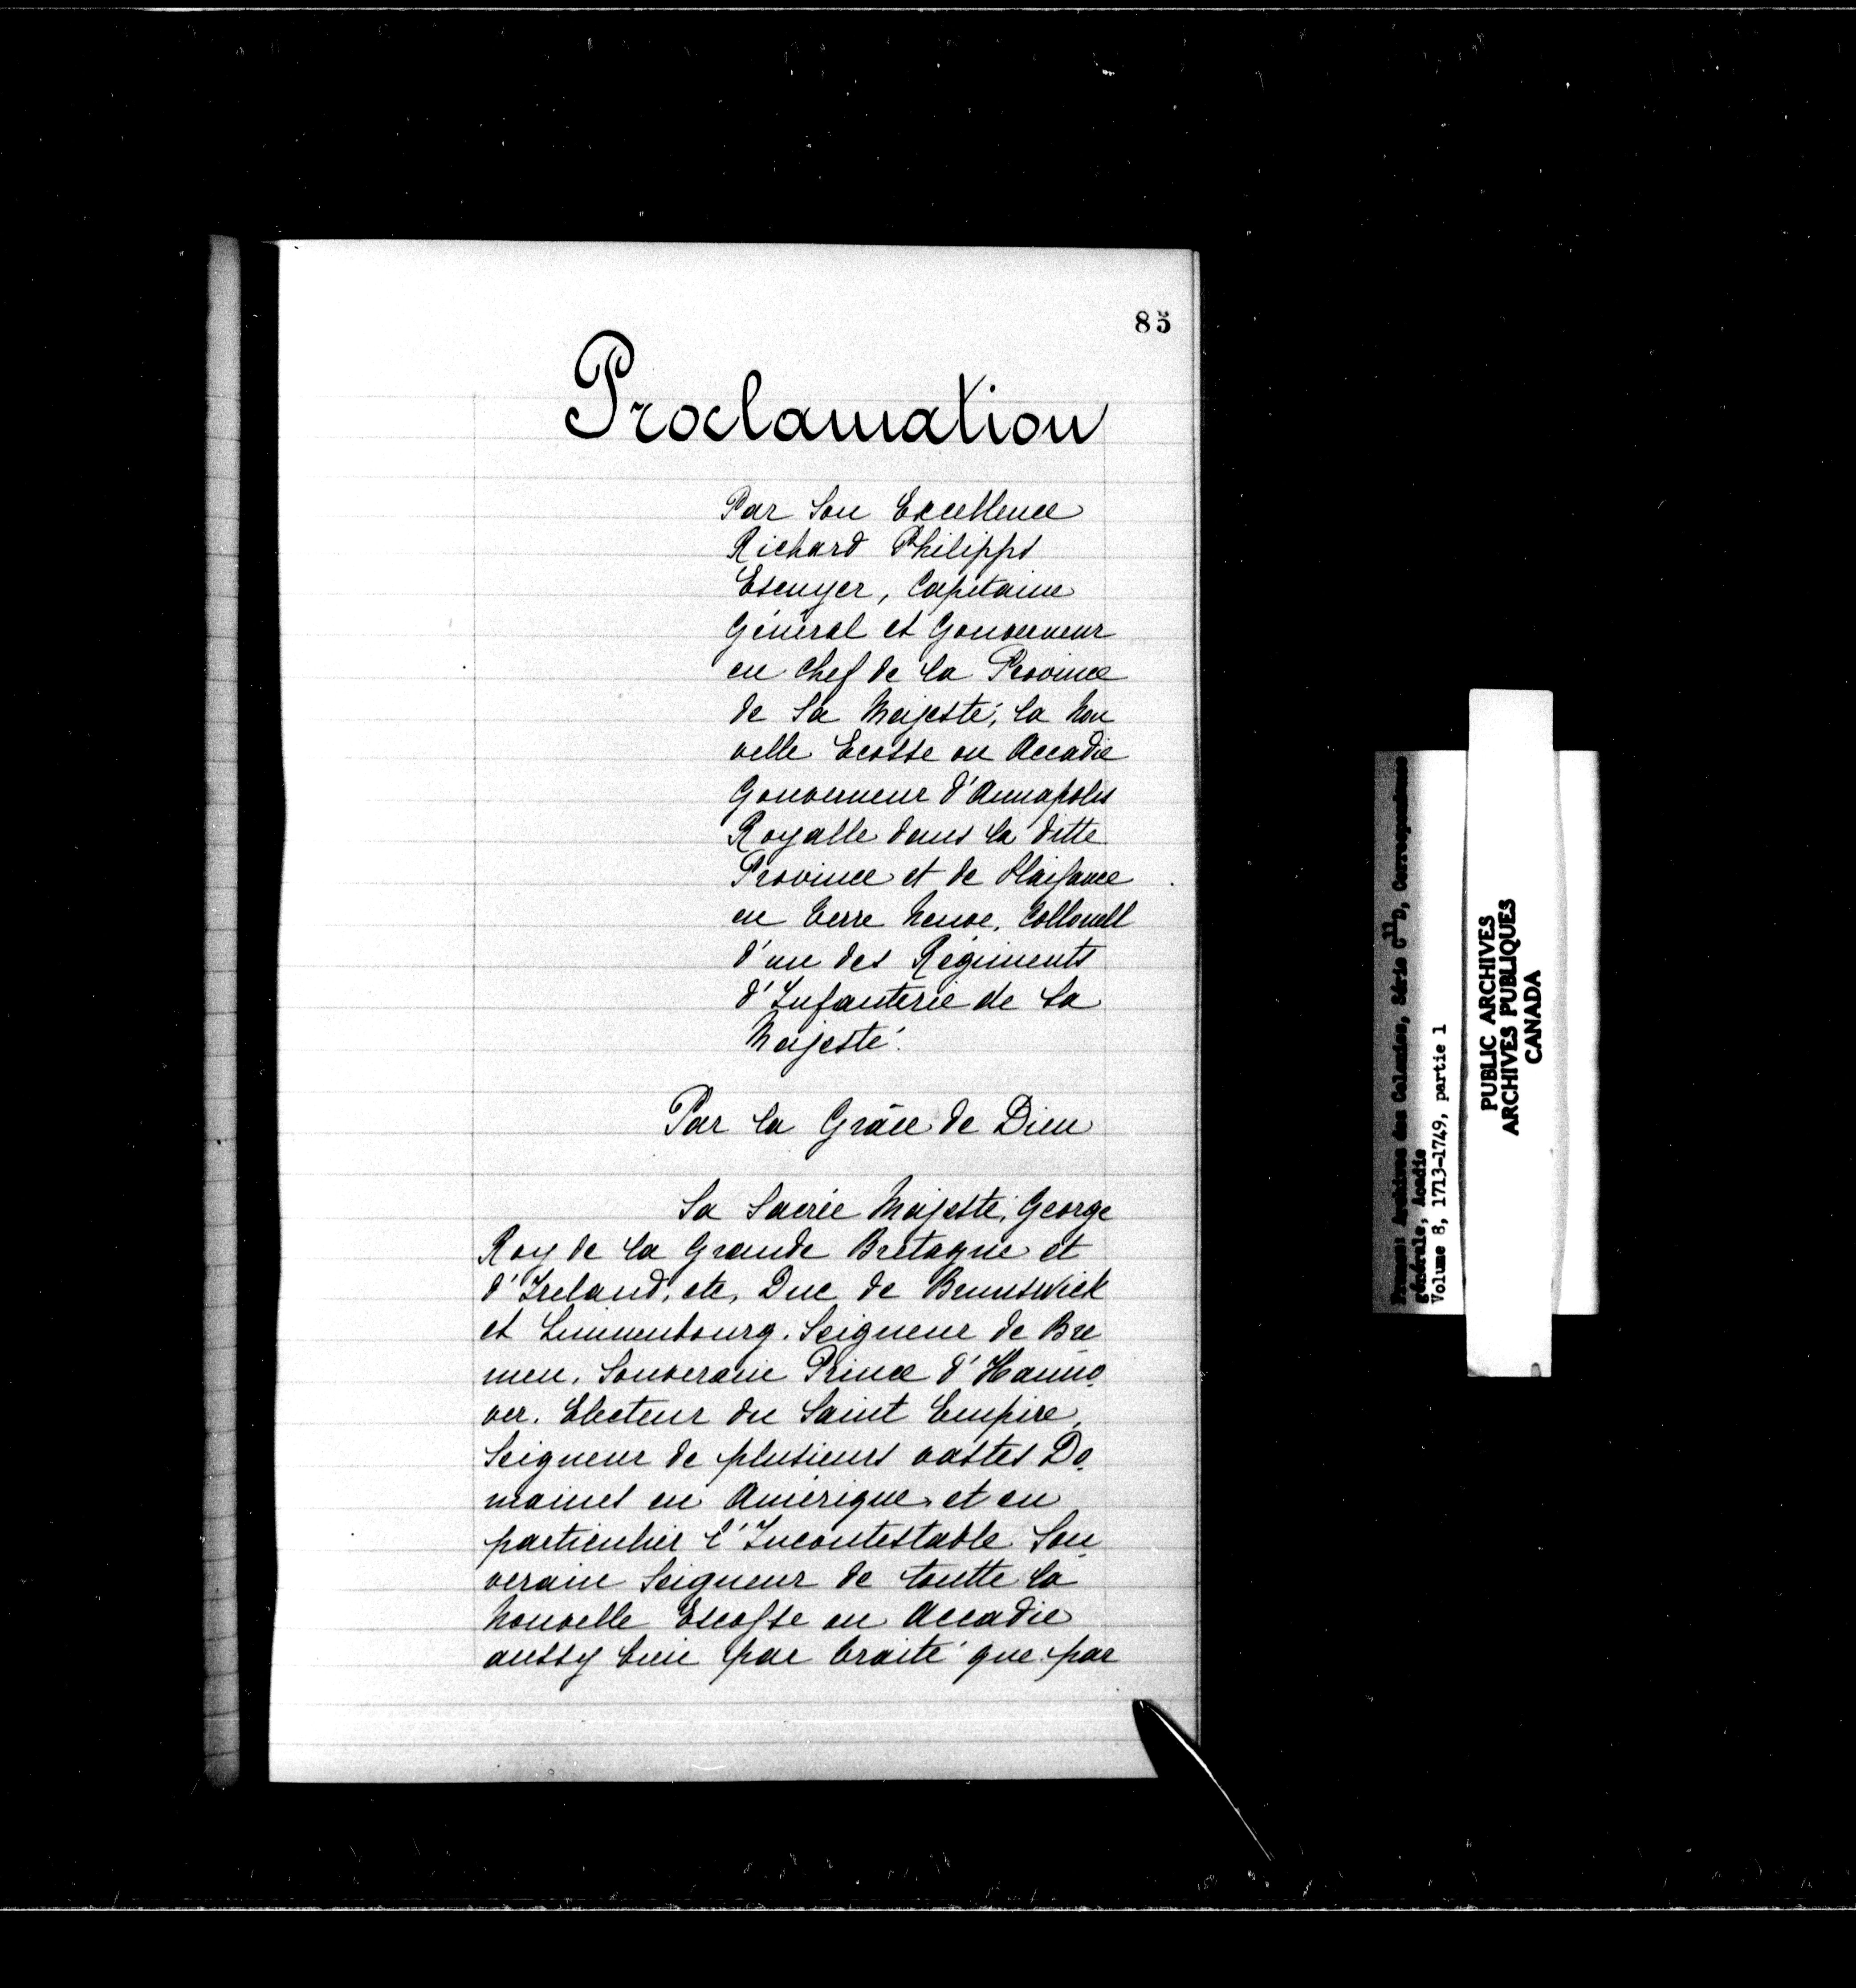 85
Proclamation
Par Son Excellence
Richard Philipps
Escuyer, Capitaine
Général et Gouverneur
en chef de la Province
de Sa Majesté, la Nou
velle Ecosse ou Accadie
Gouverneur d'Annapolis
Royalle dans la ditte
Province et de Plaisance
en Terre Neuve, Collonell
d'un des Régiments
d'Infanterie de Sa
Majesté.
Par la Grâce de Dieu
Sa Sacrée Majesté, George
Roy de la Grande Bretagne et
d'Ireland, etc, Duc de Brunswick
et Lunnenbourg. Seigneur de Bre
men, Souverain Prince d'Hanno
ver. Electeur du Saint Empire,
Seigneur de plusieurs vastes Do
maines en Amérique, et en
particulier l'Incontestable Sou
verain Seigneur de toutte la
Nouvelle Escosse ou Accadie
aussy bien par traité que par
France: Archives des Colonies, Série C11D, Correspondance
générale, Acadie
Volume 8, 1713-1749, partie 1
PUBLIC ARCHIVES
ARCHIVES PUBLIQUES
CANADA